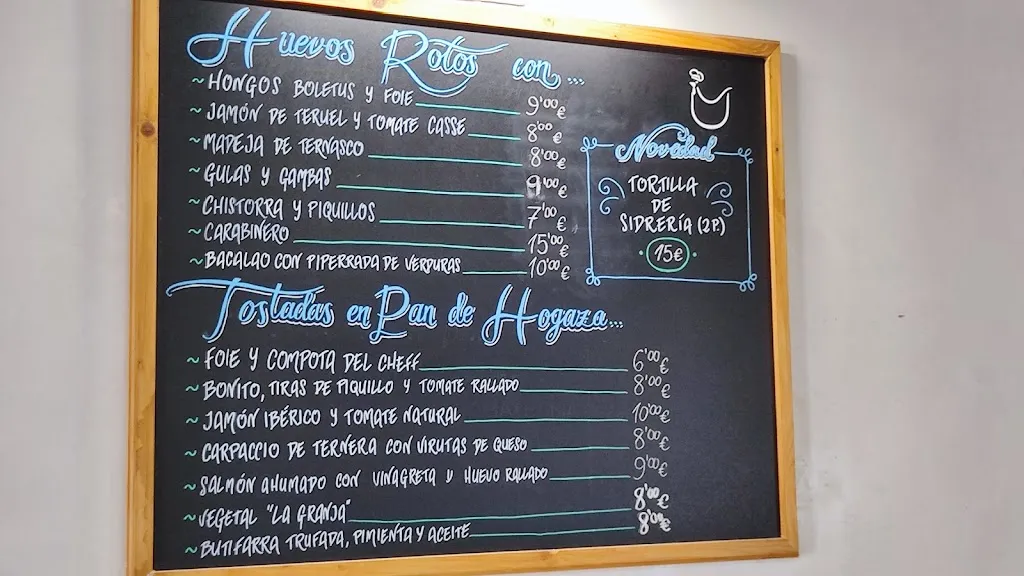 Huevos Rotos con...
~HONGOS BOLETUS Y FOIE 9'00€
~JAMÓN DE TERUEL Y TOMATE CASSE 8'00€
~MADEJA DE TERNASCO 8'00€
~GULAS Y GAMBAS 9'00€
~CHISTORRA Y PIQUILLOS 7'00€
~CARABINERO 15'00€
~BACALAO CON PIPERRADA DE VERDURAS 10'00€
Novedad
TORTILLA
DE
SIDRERÍA (2P.)
·15€·
Tostadas en Pan de Hogaza...
~FOIE Y COMPOTA DEL CHEFF 6'00€
~BONITO, TIRAS DE PIQUILLO Y TOMATE RALLADO 8'00€
~JAMÓN IBÉRICO Y TOMATE NATURAL 10'00€
~CARPACCIO DE TERNERA CON VIRUTAS DE QUESO 8'00€
~SALMÓN AHUMADO CON VINAGRETA Y HUEVO RALLADO 9'00€
~VEGETAL "LA GRANJA" 8'00€
~BUTIFARRA TRUFADA, PIMIENTA Y ACEITE 8'00€